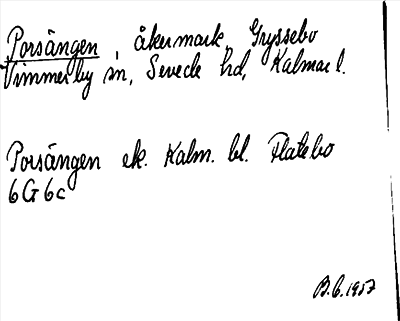 Porsängen, åkermark, Gryssebo
Vimmerby sn, Sevede hd, Kalmar l.
Porsängen ek. Kalm. bl. Flatebo
6G6c
B.C. 1957